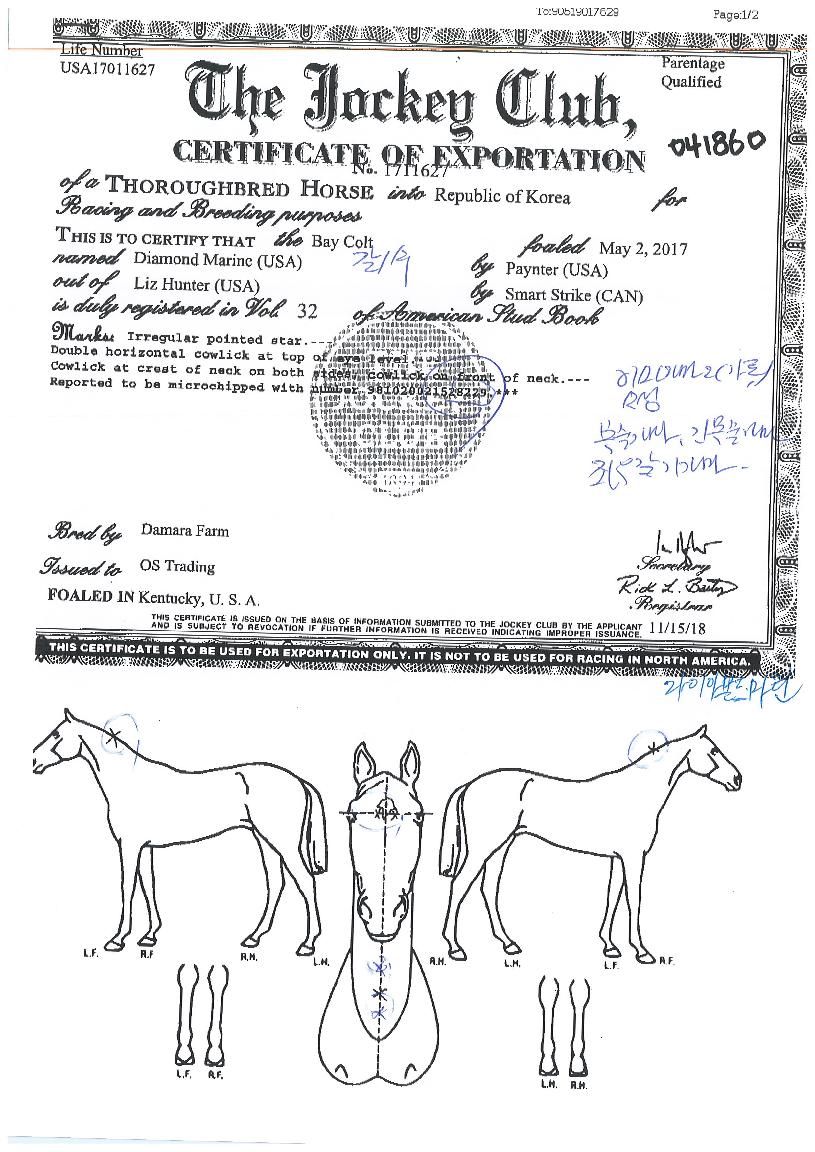 To:90519017629 Page:1/2
Life Number
USA17011627
Parentage
Qualified
The Jockey Club,
041860
CERTIFICATE OF EXPORTATION
No. 1711627
of a THOROUGHBRED HORSE into Republic of Korea for
Racing and Breeding purposes
THIS IS TO CERTIFY THAT the Bay Colt foaled May 2, 2017
named Diamond Marine (USA) by Paynter (USA)
out of Liz Hunter (USA) by Smart Strike (CAN)
is duly registered in Vol. 32 of American Stud Book
Marks: Irregular pointed star.---
Double horizontal cowlick at top of eye level and
Cowlick at crest of neck on both sides. cowlick on front of neck.---
Reported to be microchipped with number 981020021528229.***
Bred by Damara Farm
Issued to OS Trading
Secretary
Registrar
FOALED IN Kentucky, U. S. A.
THIS CERTIFICATE IS ISSUED ON THE BASIS OF INFORMATION SUBMITTED TO THE JOCKEY CLUB BY THE APPLICANT
AND IS SUBJECT TO REVOCATION IF FURTHER INFORMATION IS RECEIVED INDICATING IMPROPER ISSUANCE. 11/15/18
THIS CERTIFICATE IS TO BE USED FOR EXPORTATION ONLY. IT IS NOT TO BE USED FOR RACING IN NORTH AMERICA.
L.F. R.F R.H. L.H. R.H. L.H. L.F. R.F.
L.F. R.F. L.H. R.H.